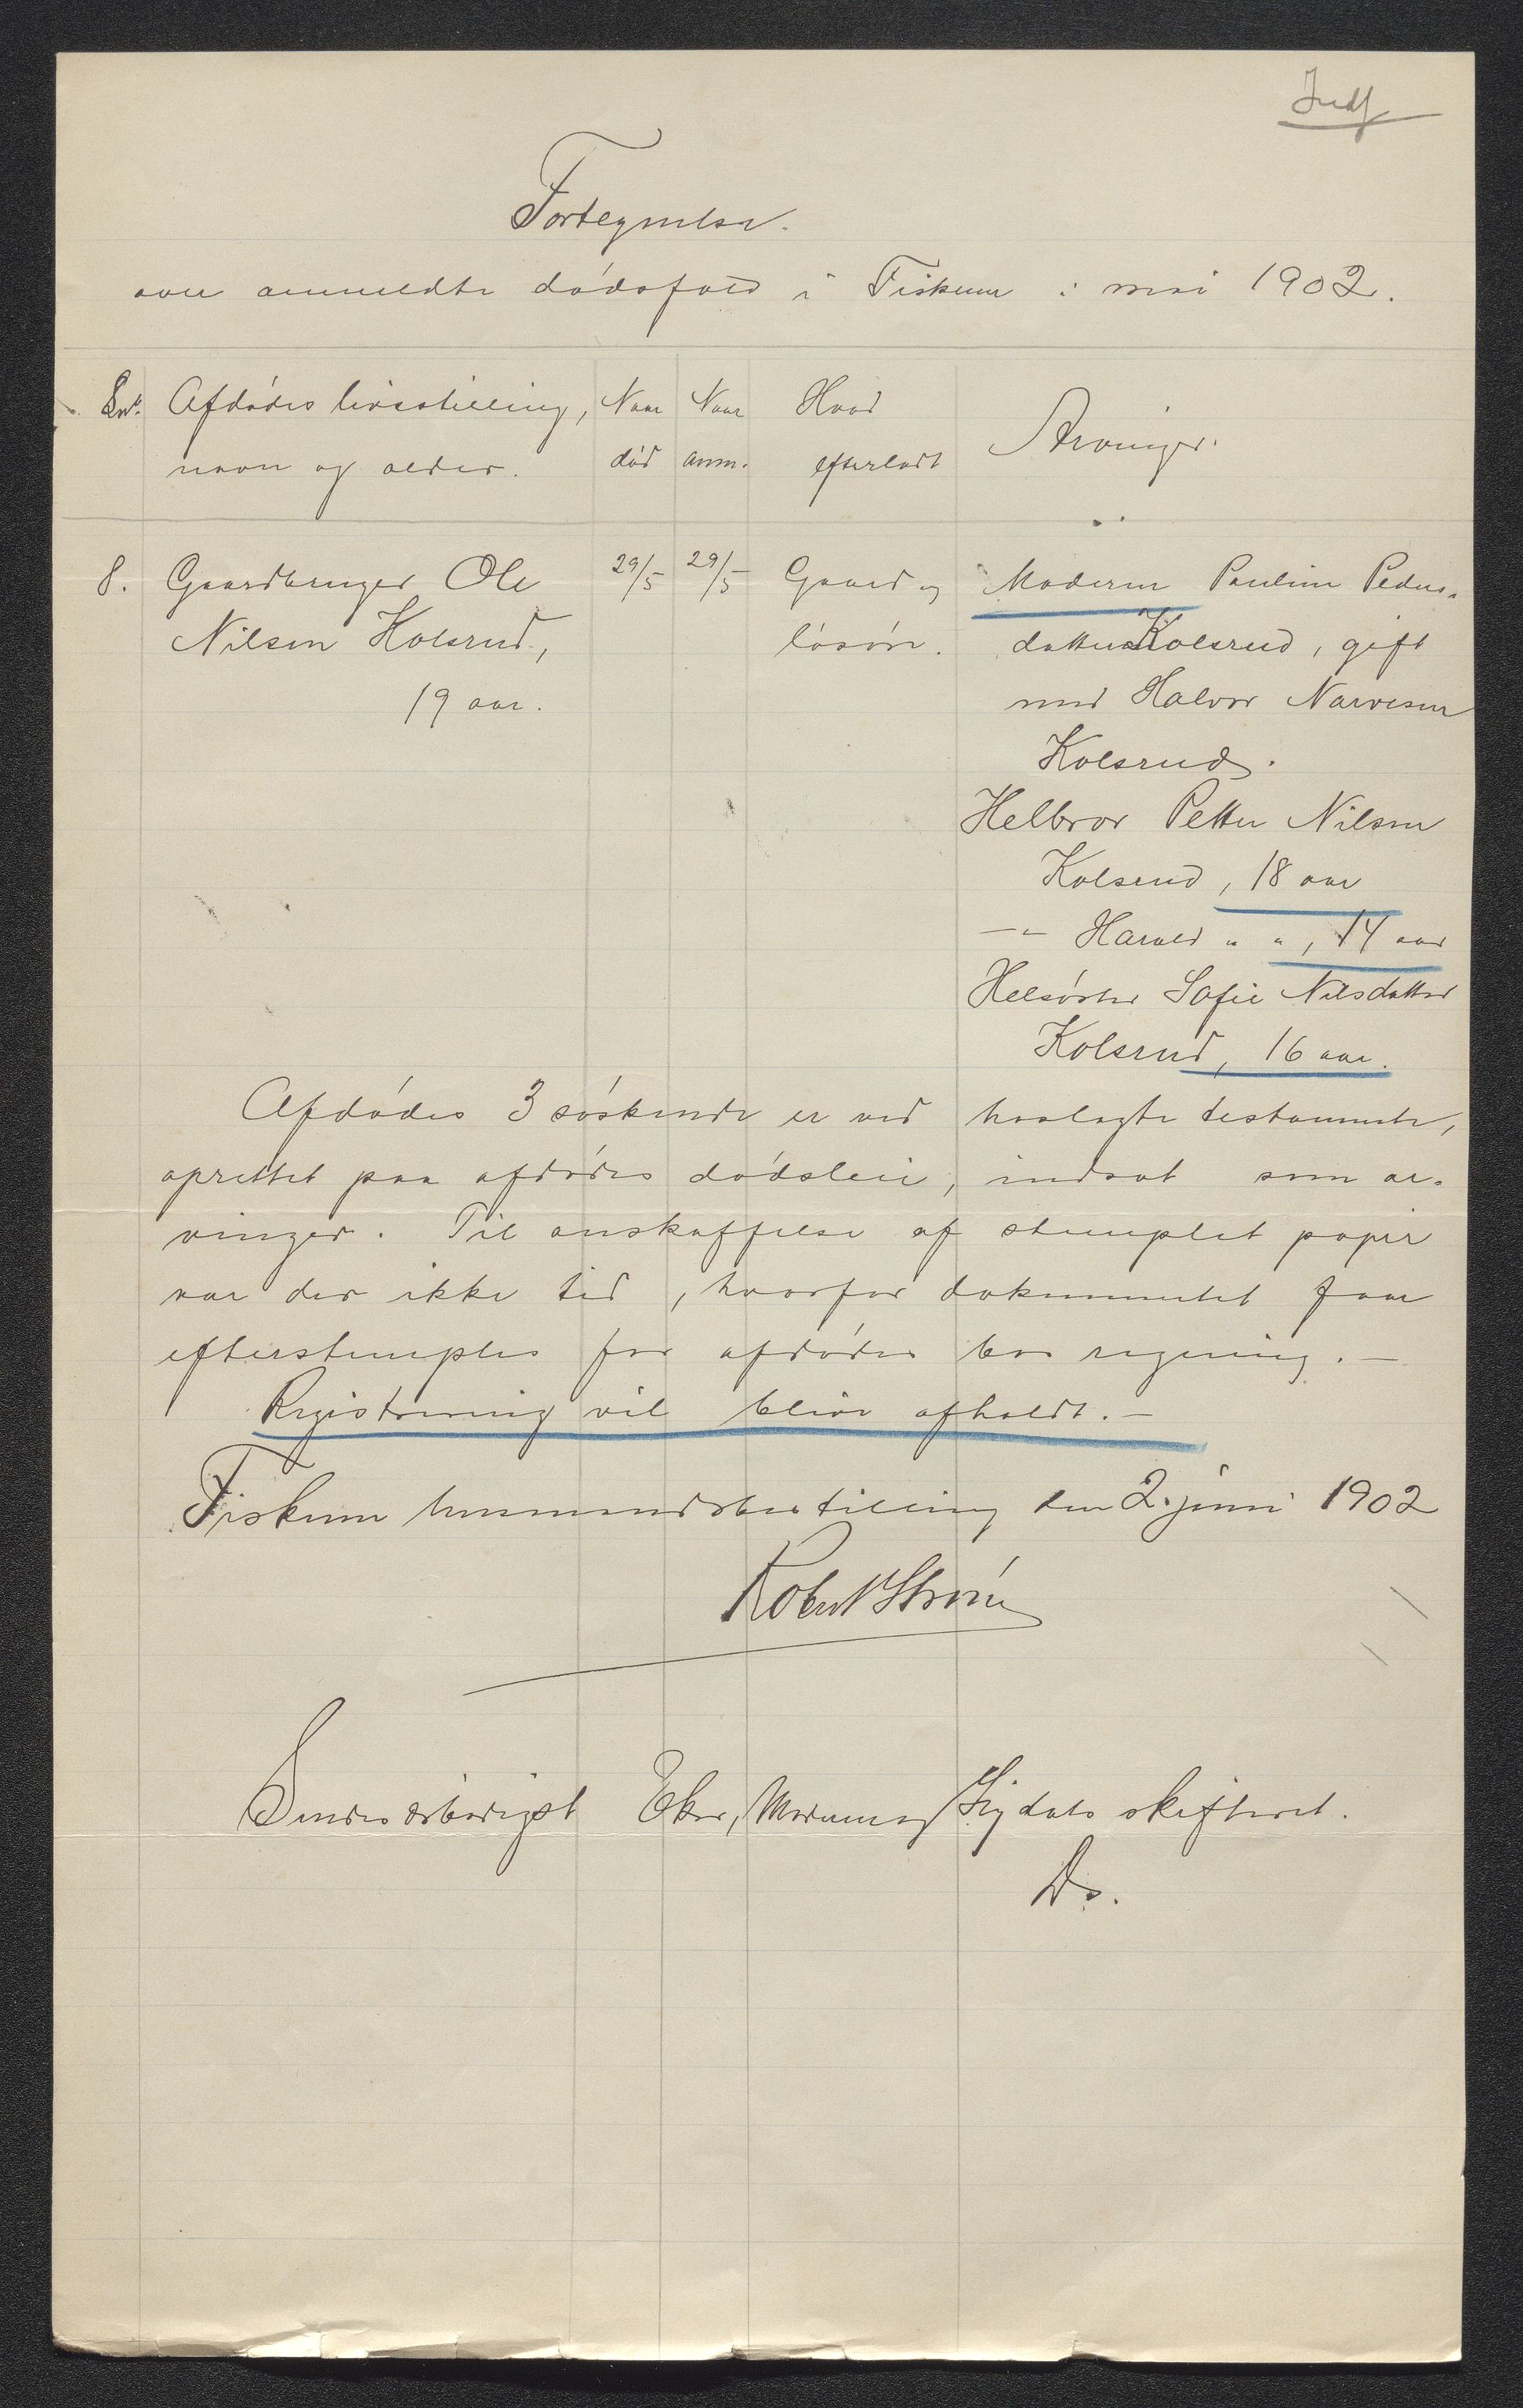 Indf
Fortegnelse.
over anmeldte dødsfald i Fiskum i mai 1902.
Lnr. Afdødes livsstilling, Naar Naar Hvad Arvinger.
navn og alder. død anm. efterladt
8. Gaardbruger Ole 29/5 29/5 Gaard og Moderen Pauline Peders-
Nilsen Kolsrud, løsøre. datter Kolsrud, gift
19 aar. med Halvor Narvesen
Kolsrud.
Helbror Petter Nilsen
Kolsrud, 18 aar
—"— Harald " ", 14 aar
Helsøster Sofie Nilsdatter
Kolsrud, 16 aar.
Afdødes 3 søskende er ved hoslagte testamente,
oprettet paa afdødes dødsleie, indsat som ar-
vinger. Til anskaffelse af stemplet papir
var der ikke tid, hvorfor dokumentet faar
efterstemples for afdødes bos regning. —
Registrering vil blive afholdt. —
Fiskum lensmandsbestilling den 2. juni 1902
Robert Strøm
Sendes ærbødigst Eker, Modum og Sigdals skifteret.
Ds.